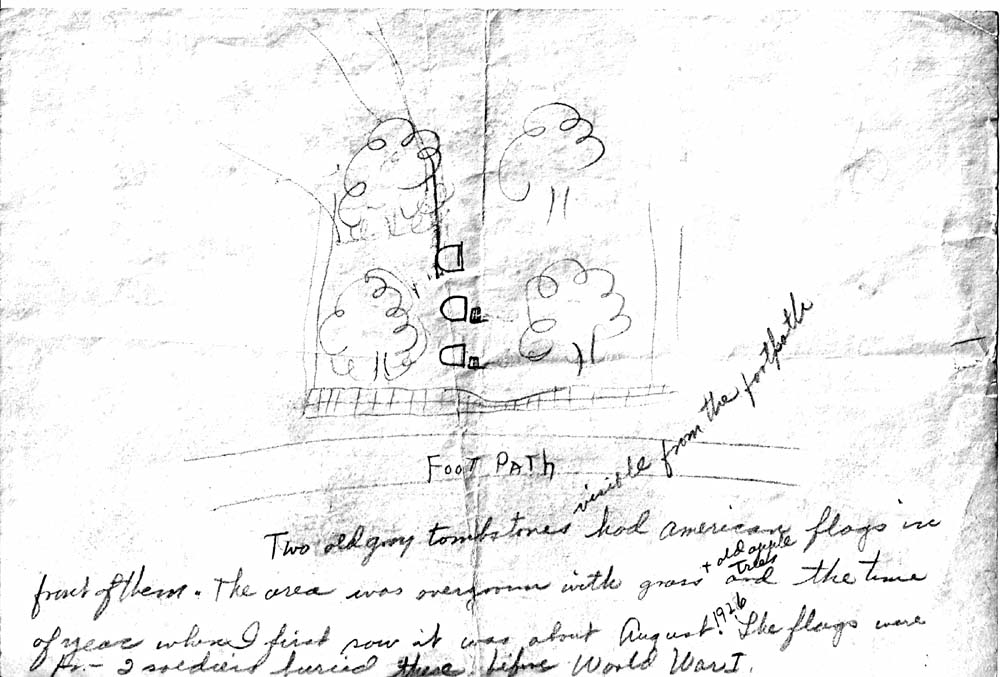 FOOT PATH
visible from the footpath
Two old gray tombstones had american flags in
+ old apple
trees
front of them. The area was overgrown with grass and the time
1926
of year when I first saw it was about August. The flags were
for - 2 soldiers buried there before World War I.